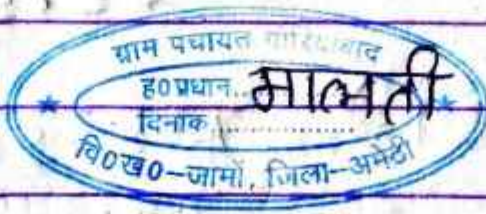 ग्राम पंचायत
ह0 प्रधान.. मालती
दिनांक ..............
वि0 ख0-जामों, जिला-अमेठी